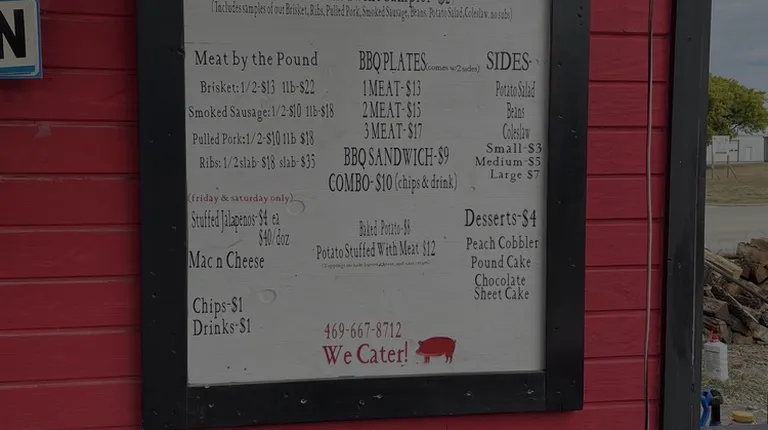 N
(Includes samples of our Brisket, Ribs, Pulled Pork, Smoked Sausage, Beans, Potato Salad, Coleslaw, no subs)
Meat by the Pound
Brisket: 1/2-$13 1lb-$22
Smoked Sausage: 1/2-$10 1lb-$18
Pulled Pork: 1/2-$10 1lb $18
Ribs: 1/2 slab- $18 slab- $35
(friday & saturday only)
Stuffed Jalapenos-$4 ea
$40/doz
Mac n Cheese
Chips-$1
Drinks-$1
BBQ PLATES (comes w/2 sides)
1 MEAT-$13
2 MEAT-$15
3 MEAT-$17
BBQ SANDWICH-$9
COMBO-$10 (chips & drink)
Baked Potato-$8
Potato Stuffed With Meat $12
469-667-8712
We Cater!
SIDES-
Potato Salad
Beans
Coleslaw
Small-$3
Medium-$5
Large $7
Desserts-$4
Peach Cobbler
Pound Cake
Chocolate
Sheet Cake